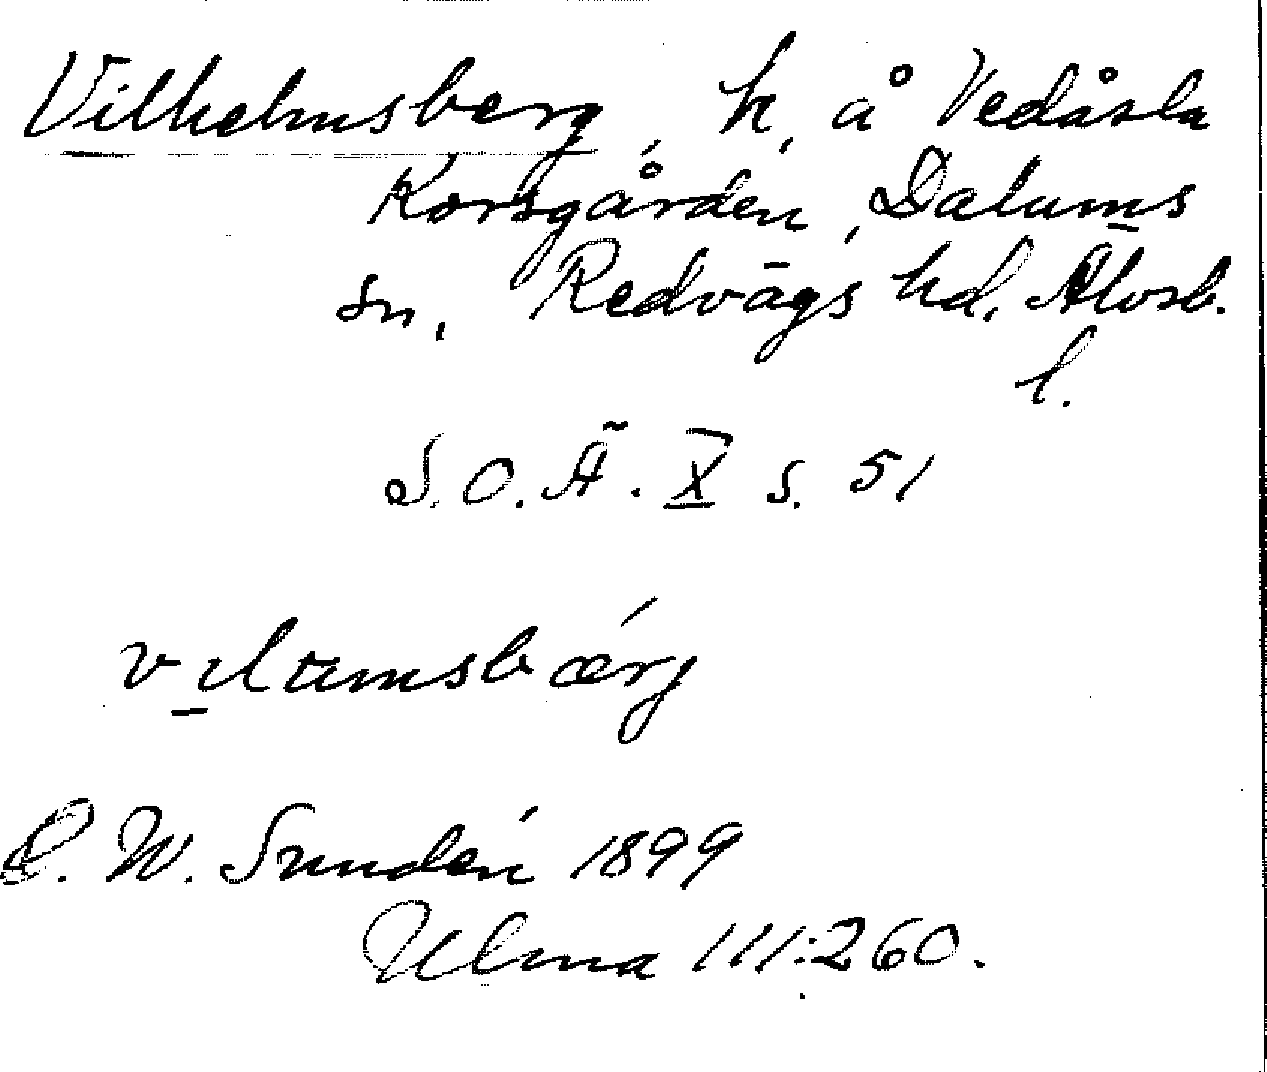 Vilhelmsberg, h, å Vedåsla
Korsgården, Dalums
sn, Redvägs hd, Älvsb.
l.
S.O.Ä. X s. 51
vilæmsbǽrj
D. W. Sundén 1899
Ulma 111:260.